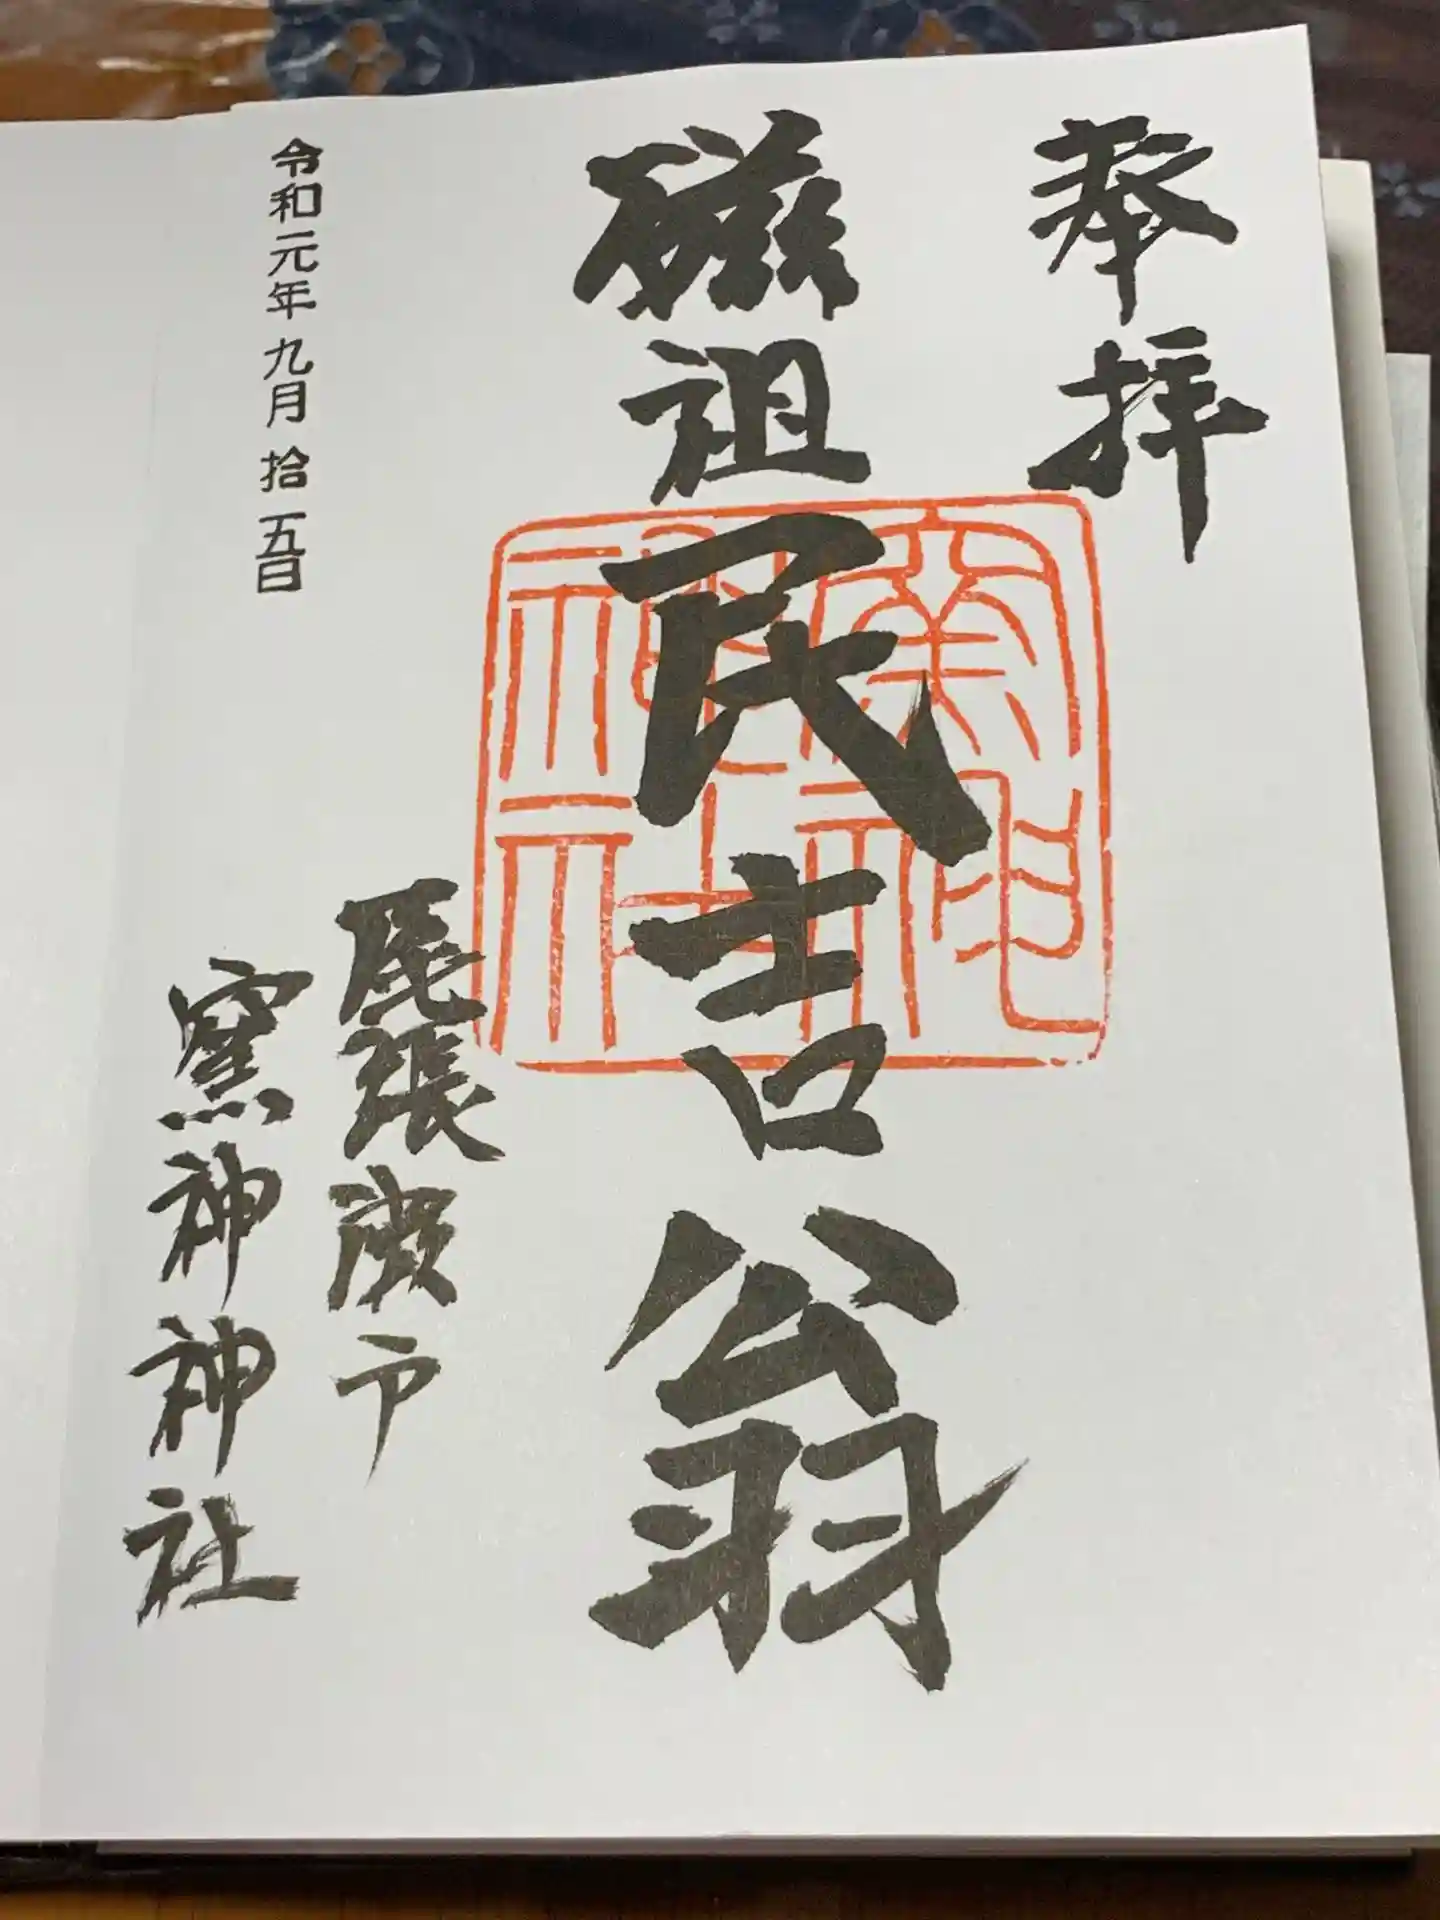 奉拝
磁祖民吉翁
尾張瀬戸
窯神神社
令和元年九月拾五日
窯神神社